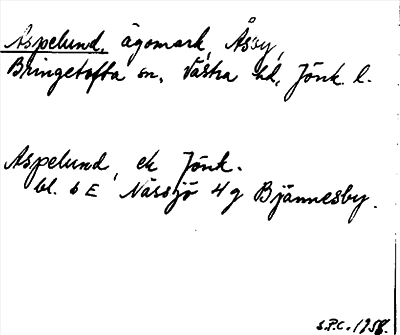 Aspelund, ägomark, Åssy,
Bringetofta sn, Västra hd, Jönk. l.
Aspelund, ek Jönk.
bl. 6 E Nässjö 4 g Bjännesby.
S.P.C. 1958.